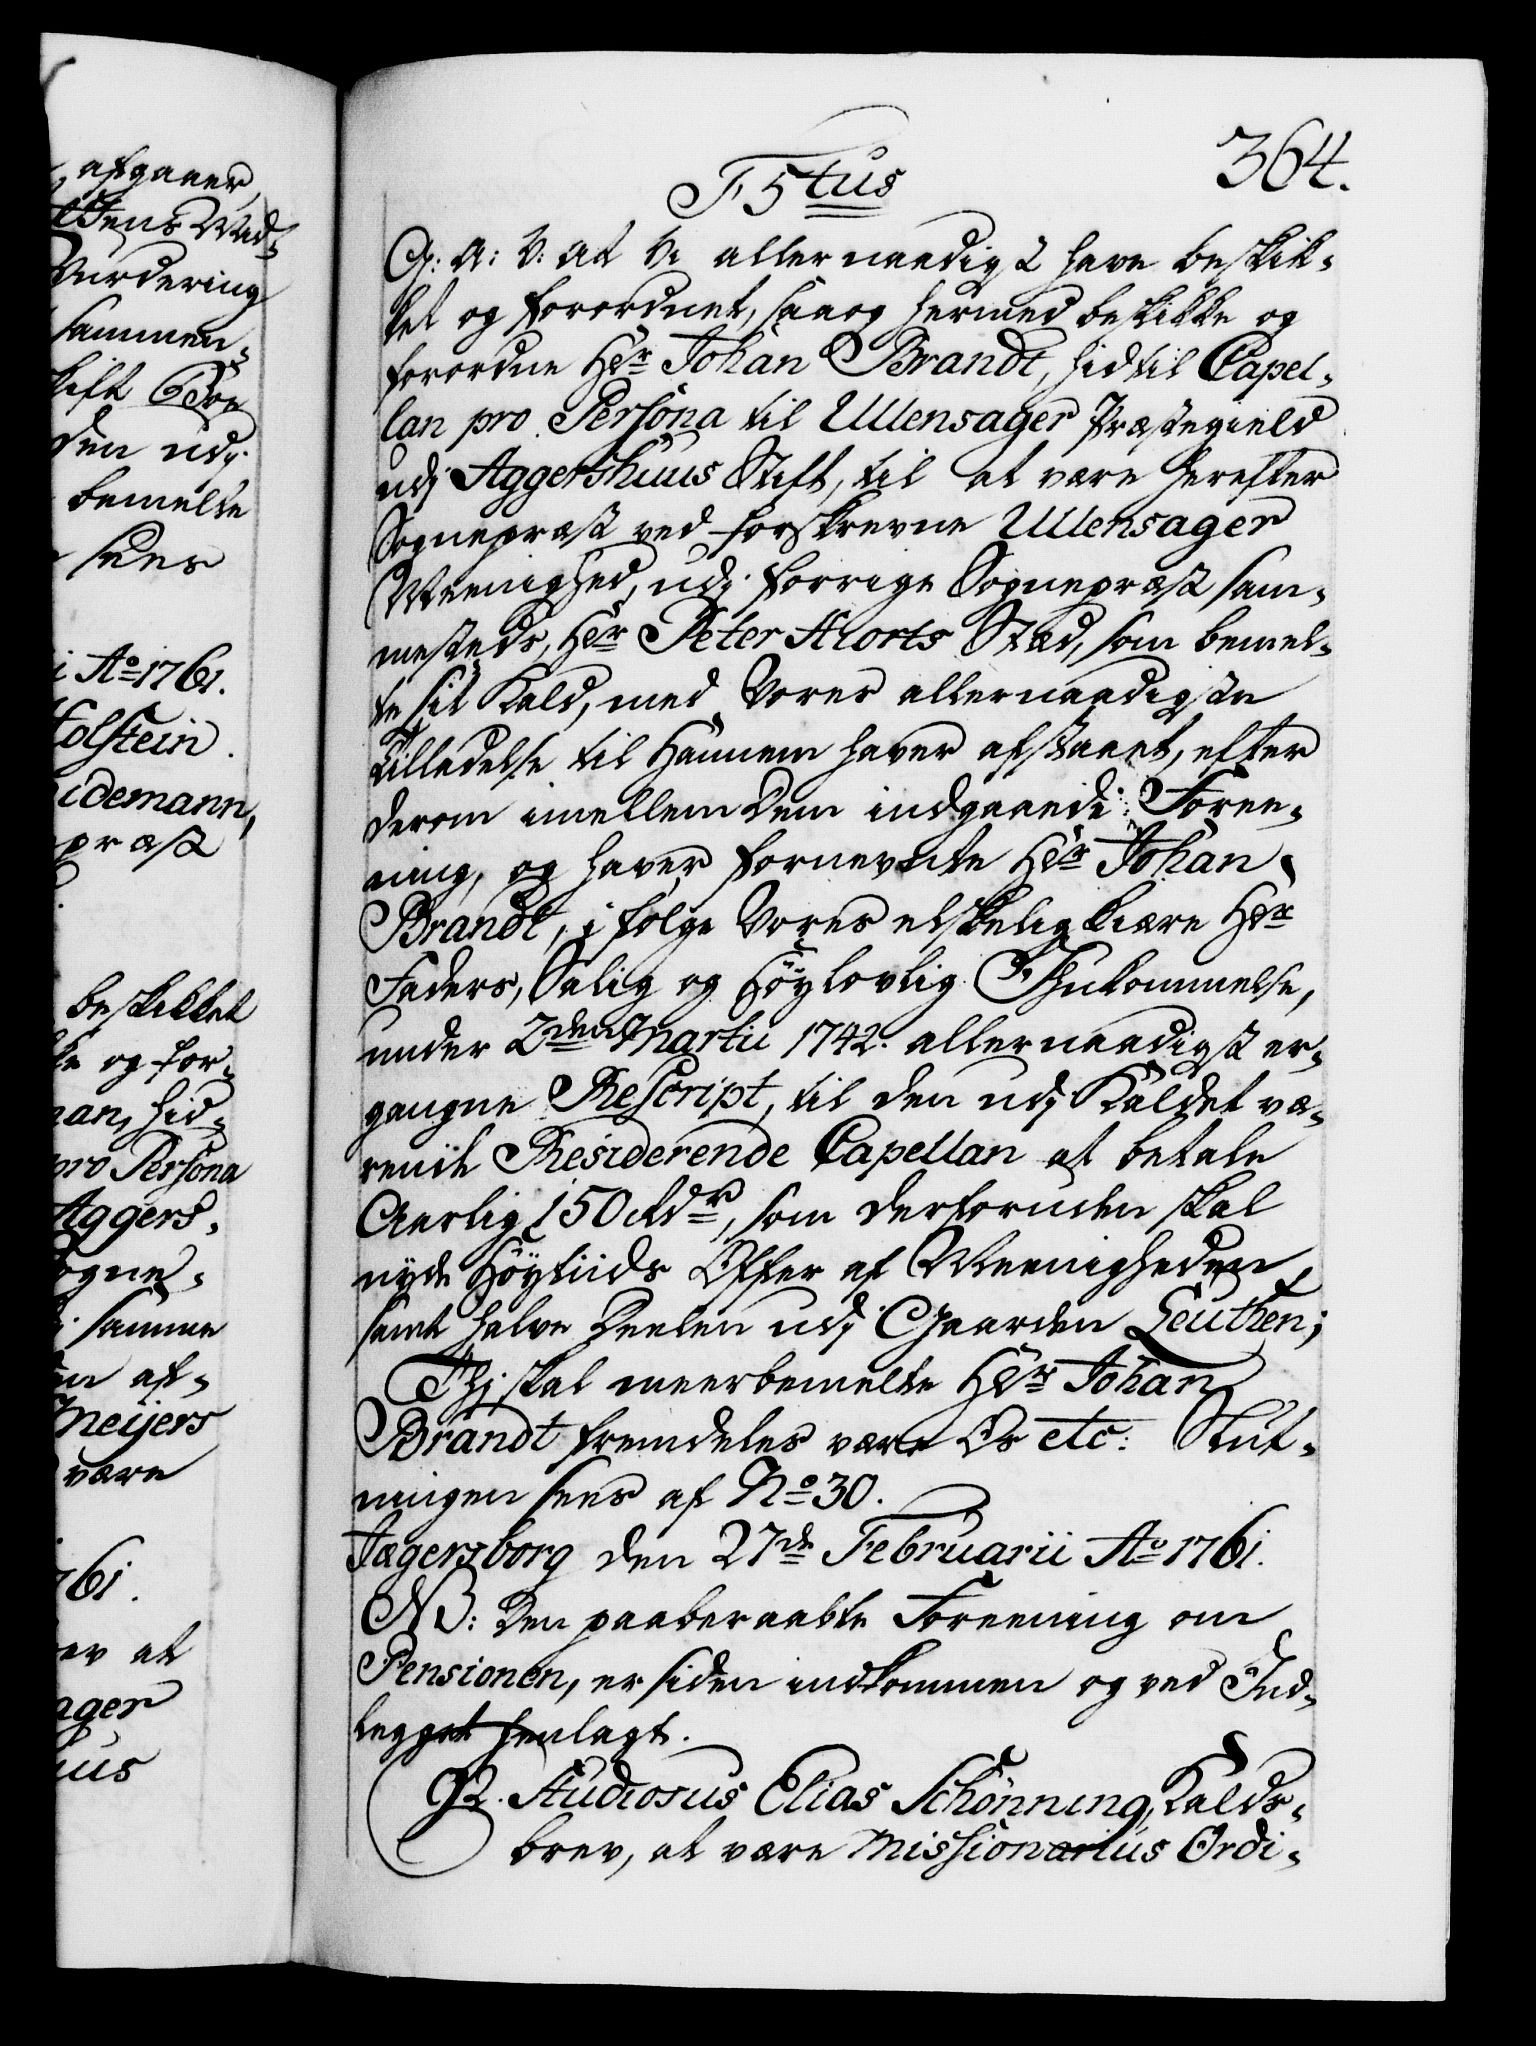 364.
F 5tus
G: A: V: at Vi allernaadigst have beskik-
ket og forordnet, saaog hermed beskikke og
forordne Hr Johan Brandt, hidtil Capel-
lan pro Persona til Ullensager Præstegield
udj Aggershuus Stift, til at være herefter
Sognepræst ved forskrevne Ullensager
Meenighed, udj forrige Sognepræst sam-
mesteds, Hr Peter Hiorts Sted, som bemel-
te sit Kald, med Vores allernaadigste
Tilladelse til Hannem haver afstaaet, efter
derom imellem Dem indgaaende Foree-
ning, og haver fornevnte Hr Johan
Brandt, i følge Vores elskelig kiære Hr
Faders, Salig og Høylovlig Ihukommelse,
under 2den Martii 1742. allernaadigst er-
gangne Rescript, til den udj Kaldet væ-
rende Residerende Capellan at betale
Aarlig 150 Rdr, som desforuden skal
nyde Høytiids Offer af Meenigheden
samt halve Deelen udj Gaarden Leuthen;
Thj skal meerbemelte Hr Johan
Brandt fremdeles være Os etc: Slut-
ningen sees af No 30.
Jægersborg den 27de Februarii Ao 1761.
NB: Den paaberaabte Foreening om
Pensionen, er siden indkommen og ved Ind-
legget henlagt.
92. Studiosus Elias Schönning, Kalds-
brev, at være Missionarius Ordi-
afgaaer
Jens Wid-
Vurdering
sammen-
Stift
den udj
bemelte
sees
i Ao 1761.
Holstein.
idemann,
præst
beskikket
ke og for-
man, hid-
pro Persona
Aggers-
ogne-
samme
en af-
Meijers
være
761.
ev at
ager
uus